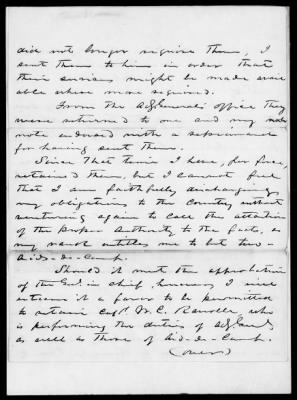 did not longer require them, I
sent them to him in order that
their services might be made avail
able where more required.
From the AdjGenerals office they
were returned to me and my
note endorsed with a
for having sent them.
Since that time I have, per force,
retained them, but I cannot feel
that I am faithfully discharging
my obligations to the Country without
venturing again to call the attention
of the proper authority to the fact, as
my rank entitles me to but two
Aids-de-Camp.
Should it meet the approbation
of the Genl. in chief, however, I will
esteem it a favor to be permitted
to retain Capt. W. C. who
is performing the duties of
as well as those of Aid-de-Camp.
(over)